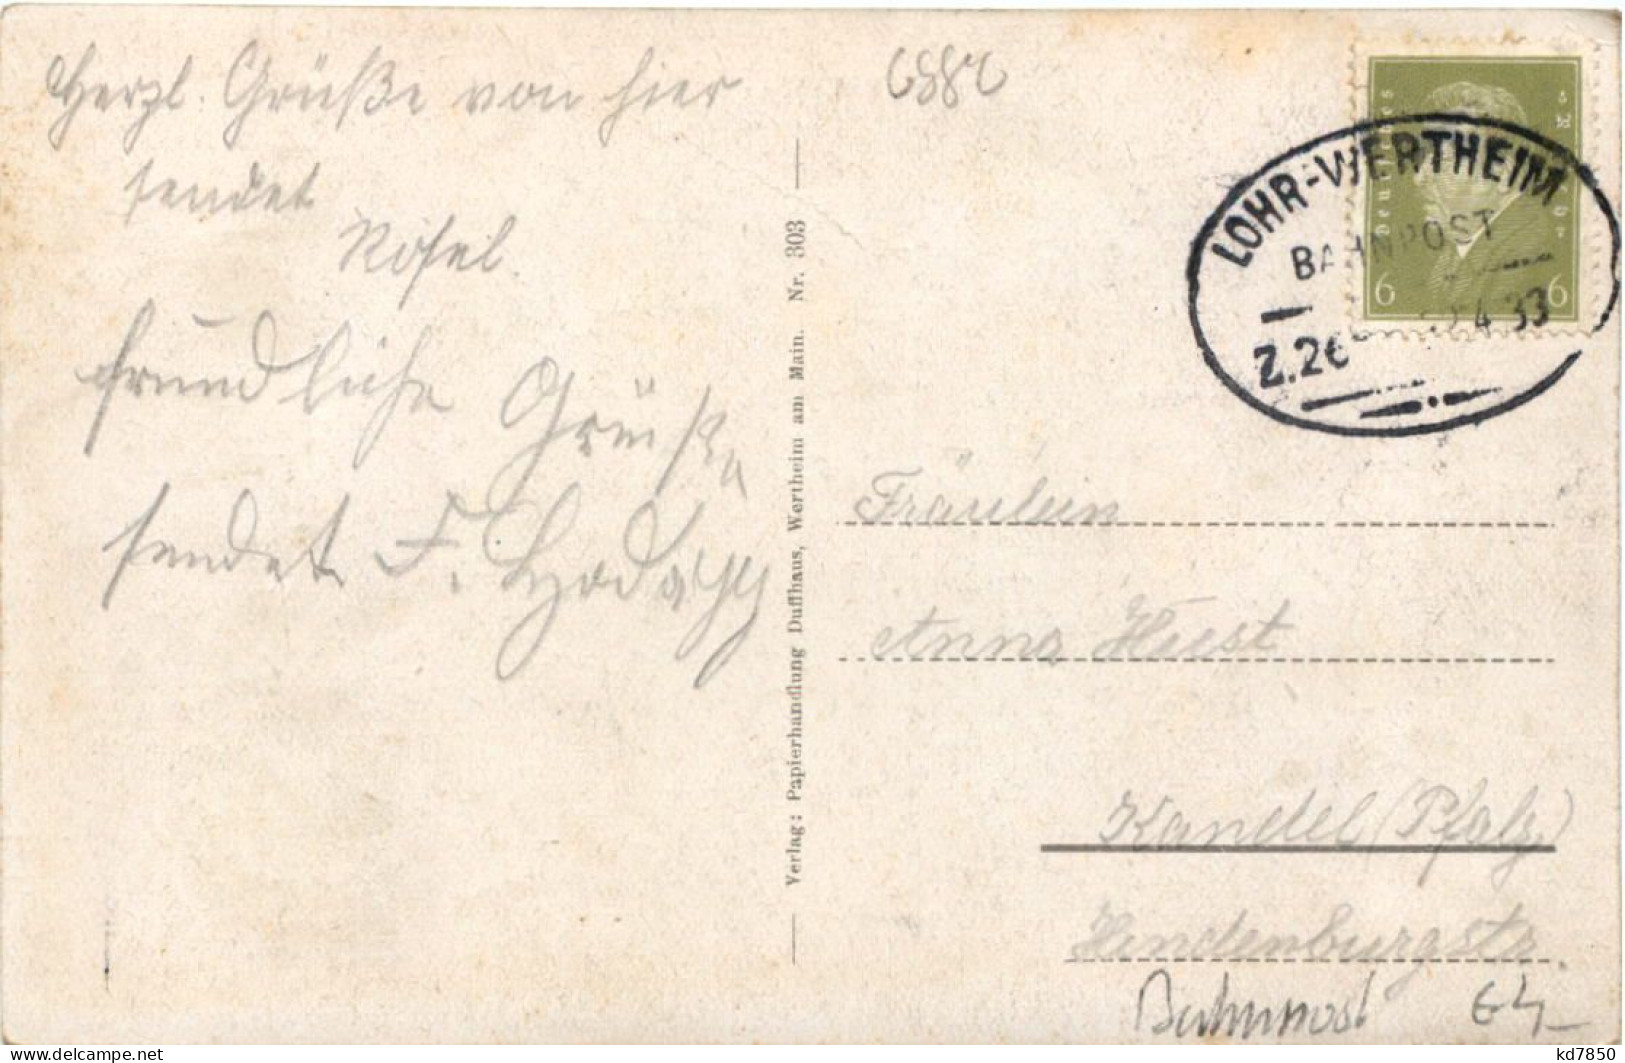 Herzl. Grüße von hier
sendet
Rösel.
freundliche Grüße
sendet F.
Verlag: Papierhandlung Duffhaus, Wertheim am Main. Nr. 303
Deutsches
6 6
LOHR-WERTHEIM
BAHNPOST
Z.26 4 33
Fräulein
Anna
Kandel (Pfalz)
Hindenburgstr.
Bahnpost
kd7850